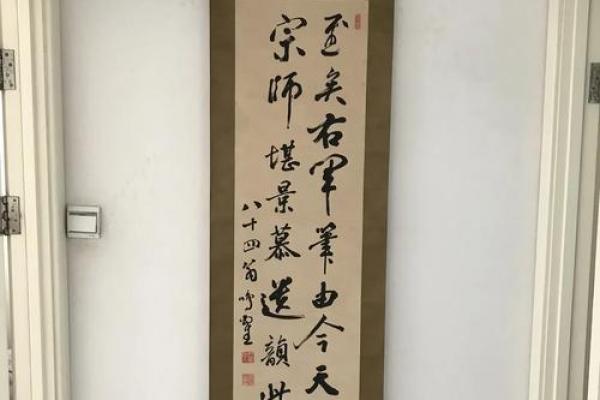 至矣右軍筆由今天
宗師堪景慕遺韻
八十四翁鳴